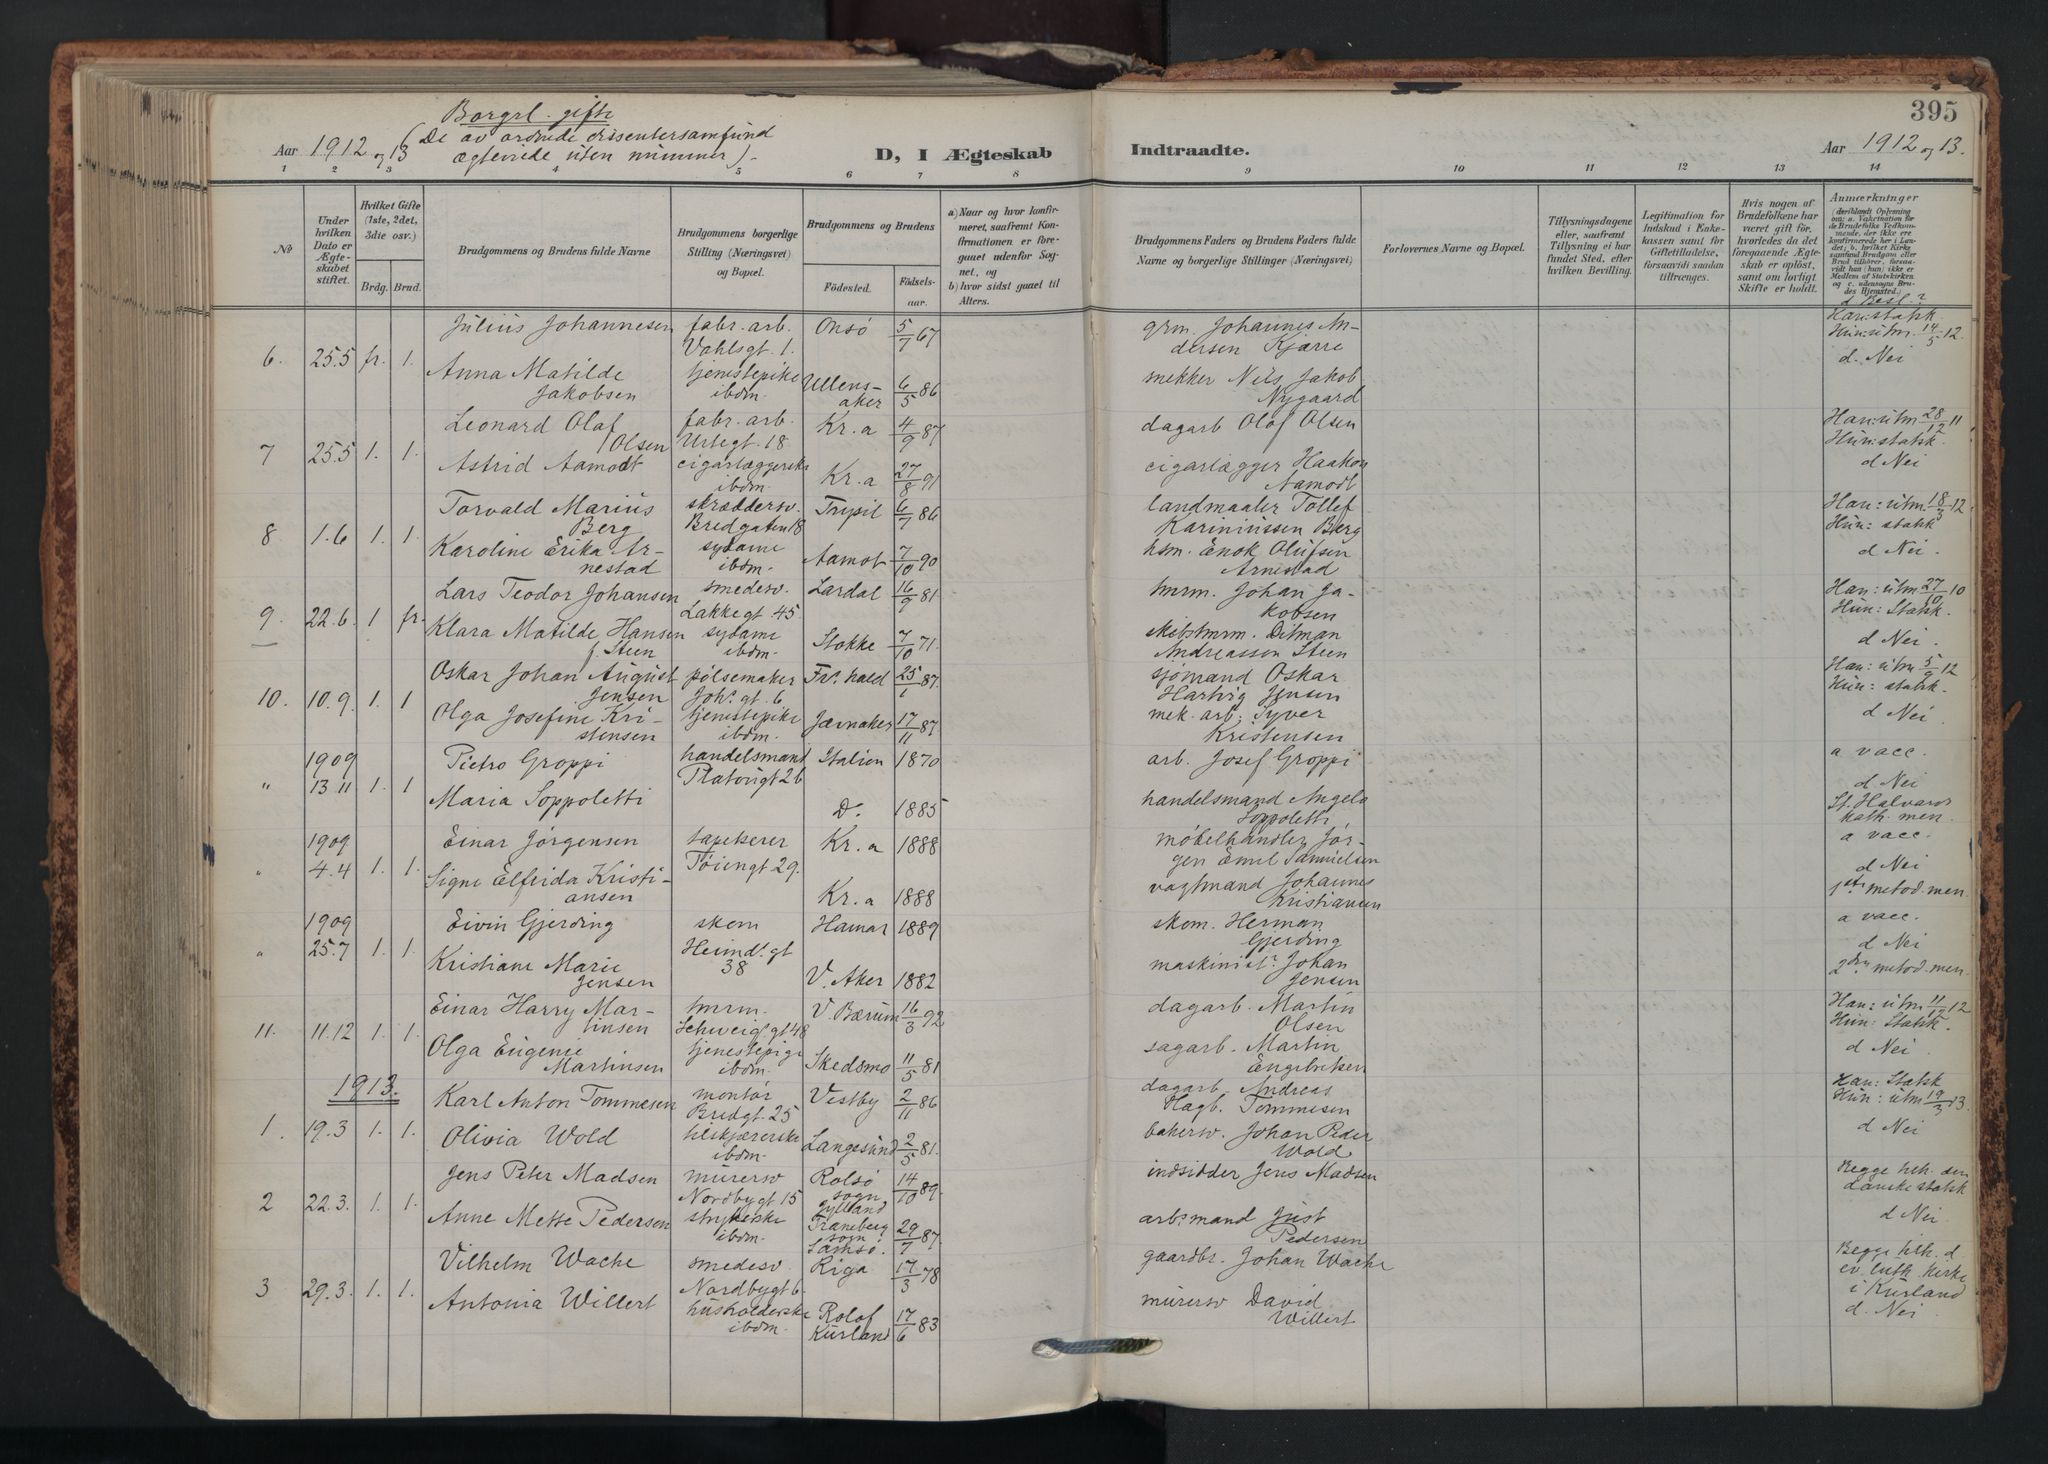 395
Borgrl. gifte
(De av ordnede dissentersamfund
ægteviede uten nummer).
Aar 1912 og 13
D, I Ægteskab Indtraadte.
Aar 1912 og 13.
1 2 3 4 5 6 7 8 9 10 11 12 13 14
No
Under hvilken Dato er Ægteskabet stiftet.
Hvilket Gifte (1ste, 2det, 3die osv.)
Brdg. Brud.
Brudgommens og Brudens fulde Navne
Brudgommens borgerlige Stilling (Næringsvei) og Bopæl.
Brudgommens og Brudens
Fødested. Fødsels-aar.
a) Naar og hvor konfirmeret, saafremt Konfirmationen er foregaaet udenfor Sognet, og
b) hvor sidst gaaet til Alters.
Brudgommens Faders og Brudens Faders fulde Navne og borgerlige Stillinger (Næringsvei)
Forlovernes Navne og Bopæl.
Tillysningsdagene eller, saafremt Tillysning ei har fundet Sted, efter hvilken Bevilling.
Legitimation for Indskud i Enkekassen samt for Giftetilladelse, forsaavidt saadan tiltrænges.
Hvis nogen af Brudefolkene har været gift før, hvorledes da det foregaaende Ægteskab er opløst, samt om lovligt Skifte er holdt.
Anmærkninger
(deriblandt Oplysning om: a. Vakcination for de Brudefolks Vedkommende, der ikke ere konfirmerede her i Landet; b. hvilket Kirkesamfund Brudgom eller Brud tilhører, forsaavidt han (hun) ikke er Medlem af Statskirken og c. udensogns Brudes Hjemsted.)
d Besl.?
Julius Johannesen fabr. arb. Onsø 5/7 67 grm. Johannes An- Han: statsk.
6. 25.5 fr. 1. Vahlsgt. 1. dersen Kjærre Hun: utm. 14/5 12.
Anna Matilde tjenestepike Ullens- 6/5 86 snekker Nils Jakob d. Nei
Jakobsen ibdm. aker Nygaard
Leonard Olaf fabr. arb. Kr.a 4/9 87 dagarb Olof Olsen Han: utm 28/12 11
7 25.5 1. 1. Olsen Urtegt. 18 Hun: statsk.
Astrid Aamodt cigarlæggerske Kr.a 27/8 91 cigarlægger Haakon d Nei
ibdm. Aamodt
Torvald Marius skræddersv. Trysil 6/7 86 landmaaler Tollef Han: utm. 18/3 12
8 1.6 1. 1. Berg Bredgaten 18 Kariniussen Berg Hun: statsk
Karoline Erika Ar- sydame Aamot 7/10 90 hsm. Enok Olufsen d Nei.
nestad ibdm. Arnestad
Lars Teodor Johansen smedesv. Lardal 16/9 81 tmrm. Johan Ja- Han: utm 27/10 10
9 22.6. 1 fr. Lakkegt. 45. kobsen Hun: Statsk.
Klara Matilde Hansen sydame Stokke 7/10 71. skibstmrm. Ditman d Nei.
f. Steen ibdm. Andreassen Steen
Oskar Johan August pølsemaker Fr.hald 25/1 87. sjømand Oskar Han: utm 5/9 12
10. 10.9. 1. 1 Jensen Joh.s gt. 6 Hartvig Jensen Hun: statsk.
Olga Josefine Kri- tjenestepike Jævnaker 17/11 87 mek. arb. Syver d Nei
stensen ibdm. Kristensen
1909 Pietro Groppi handelsmand Italien 1870 arb. Josef Groppi a vacc.
" 13.11 1. 1 Platousgt 26 d Nei
Maria Soppoletti D.o 1885 handelsmand Angelo St. Halvards
Soppoletti kath. men.
1909 Einar Jørgensen tapetserer Kr.a 1888 møbelhandler Jør- a vacc.
" 4.4 1. 1. Tøiengt 29. gen Emil Samuelsen d Nei
Signe Elfrida Kristi- Kr.a 1888 vagtmand Johannes 1ste metod. men.
ansen Kristiansen
1909 Eivin Gjerding skom Hamar 1889 skom. Herman a vacc.
" 25.7 1. 1. Heimd.gt 38 Gjerding d Nei
Kristiane Marie V. Aker 1882 maskinist Johan 2den metod. men.
Jensen Jensen
Einar Harry Mar- tmrm. V. Bærum 16/3 92 dagarb. Martin Han: utm 11/12 12
11. 11.12 1. 1. tinsen Schweig.gt 48 Olsen Hun: Statsk.
Olga Eugenie tjenestepige Skedsmo 11/5 81 sagarb. Martin d Nei
Martinsen ibdm. Engebretsen
1913.
Karl Anton Tommesen montør Vestby 2/11 86 dagarb. Andreas Han: Statsk
1. 19.3 1. 1. Bredgt. 25 Hagb. Tommesen Hun: utm 19/3 13.
Olivia Wold tilskjærerske Langesund 2/5 81. bakersv. Johan Peder d Nei
ibdm. Wold
Jens Peter Madsen murersv Rolsø sogn Jylland 14/10 89. indsidder Jens Madsen Begge tilh. den
2 22.3. 1. 1. Nordbygt 15 danske statsk
Anne Mette Pedersen strykerske Traneberg sogn Samsø. 29/7 87. arb.smand Just d Nei.
ibdm. Pedersen
Vilhelm Wache smedesv. Riga 17/3 78 gaardbr. Johan Wache Begge tilh. d
3 29.3. 1. 1. Nordbygt 6 ev. luth. kirke
Antonia Willert husholderske Rolof Kurland 17/6 83 murersv David i Kurland
ibdm. Willert d. Nei